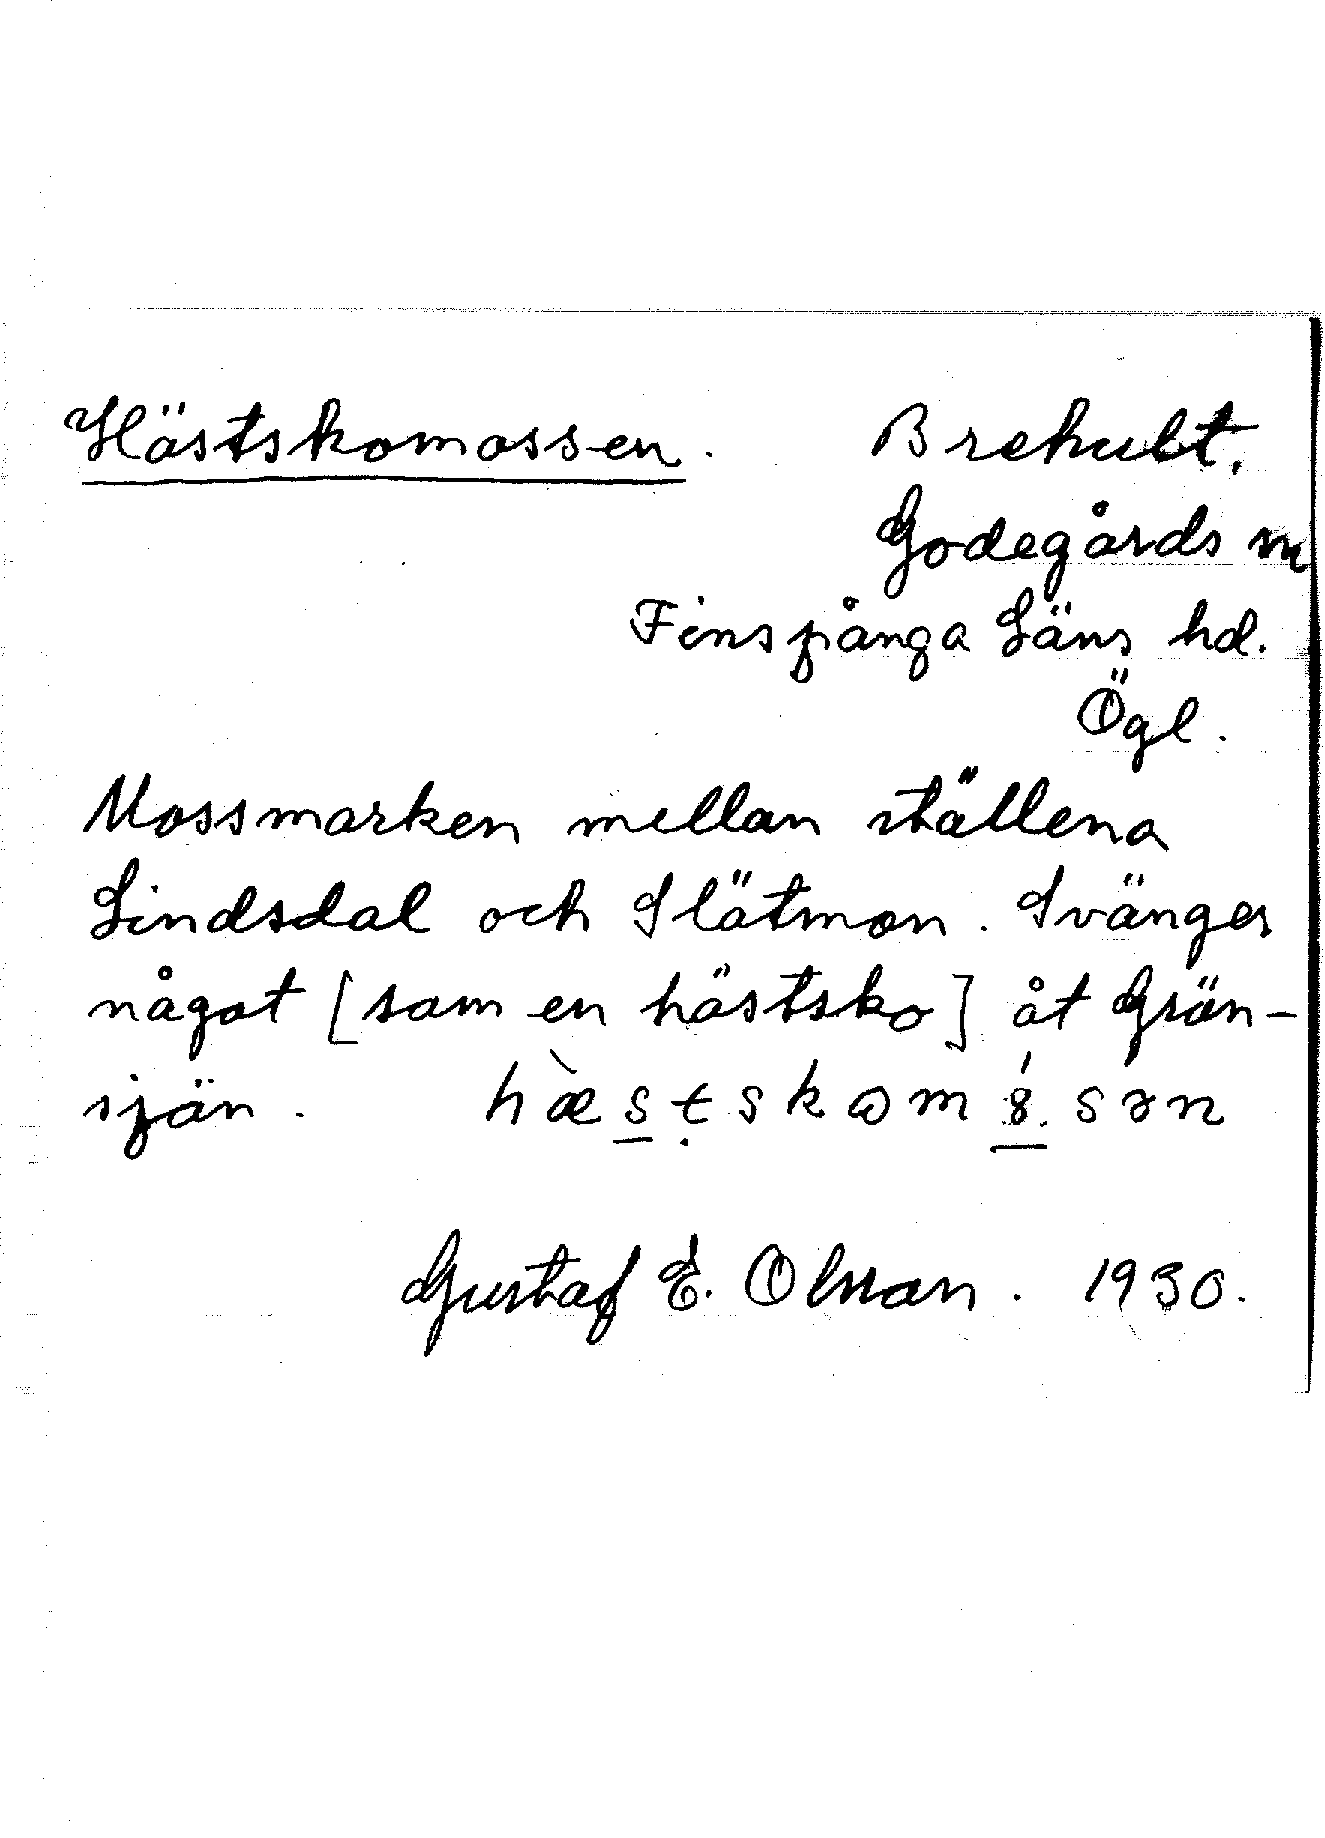 Hästskomossen. Brehult.
Godegårds sn
Finspånga Läns hd.
Ögl.
Mossmarken mellan ställena
Lindsdal och Slätmon. Svänger
något [som en hästsko] åt Grän-
sjön.
Gustaf E. Olsson. 1930.